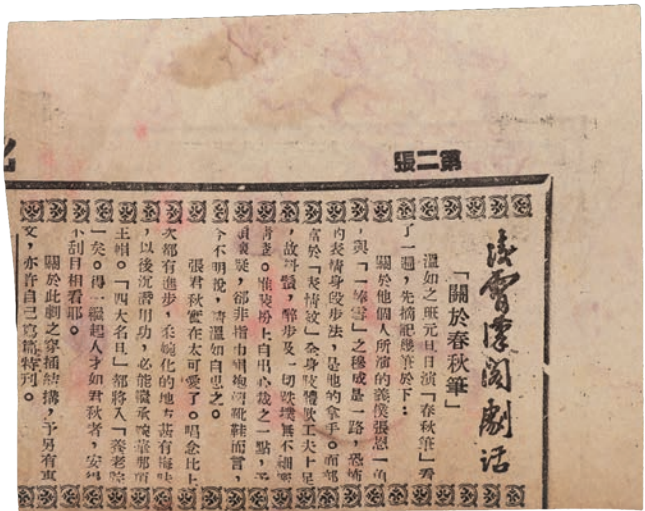 第二張
凌霄漢閣劇話
「關於春秋筆」
溫如之班元旦日演「春秋筆」看
了一過,先摘記幾筆於下:
關於他個人所演的義僕張恩一角
,與「一捧雪」之穆成是一路,恐怖
的表情身段步法,是他的拿手。而部
富於「表情紋」全身肢體工夫十足
,故髮,醉步及一切跌撲無不細
清楚。惟裝扮上白之一點,予
頗懷疑,卻非指巾網袍褶靴鞋而言,
今不明說,請溫如自思之。
張君秋實在太可愛了。唱念比上
次都有進步,柔婉化的地方甚有梅味
,以後沉潛用功,必能繼承畹華那項
王帽。「四大名旦」都將入「養老院
」矣。得一繼起人才如君秋者,安得
不刮目相看耶。
關於此劇之穿插結構,予另有專
文,亦許自己寫篇特刊。